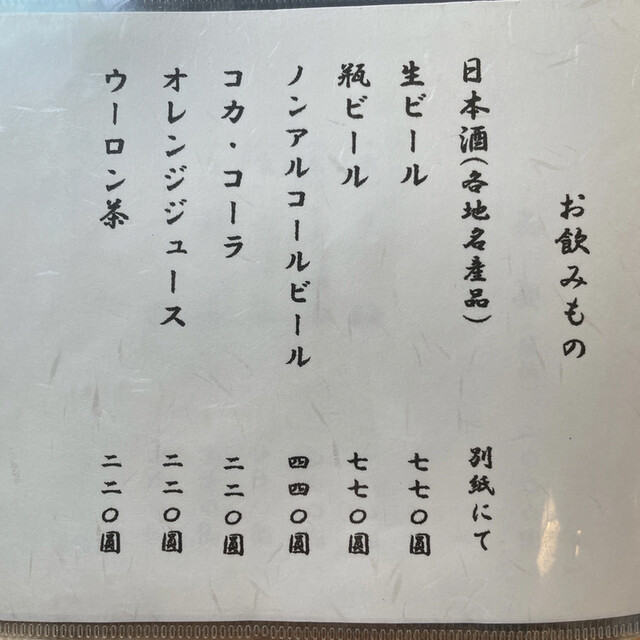 お飲みもの
日本酒(各地名産品) 別紙にて
生ビール 七七〇圓
瓶ビール 七七〇圓
ノンアルコールビール 四四〇圓
コカ・コーラ 二二〇圓
オレンジジュース 二二〇圓
ウーロン茶 二二〇圓